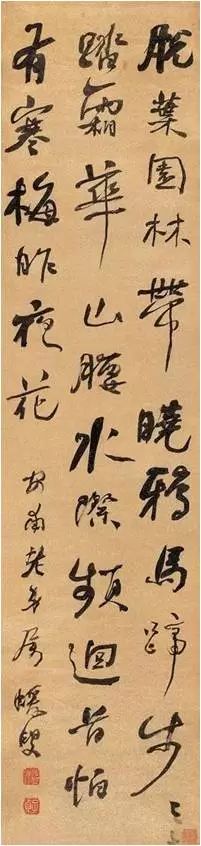 脱葉園林帶曉鴉馬蹄步〻
踏霜華山腰水際頻迴首怕
有寒梅昨夜花
屬 蝯叟